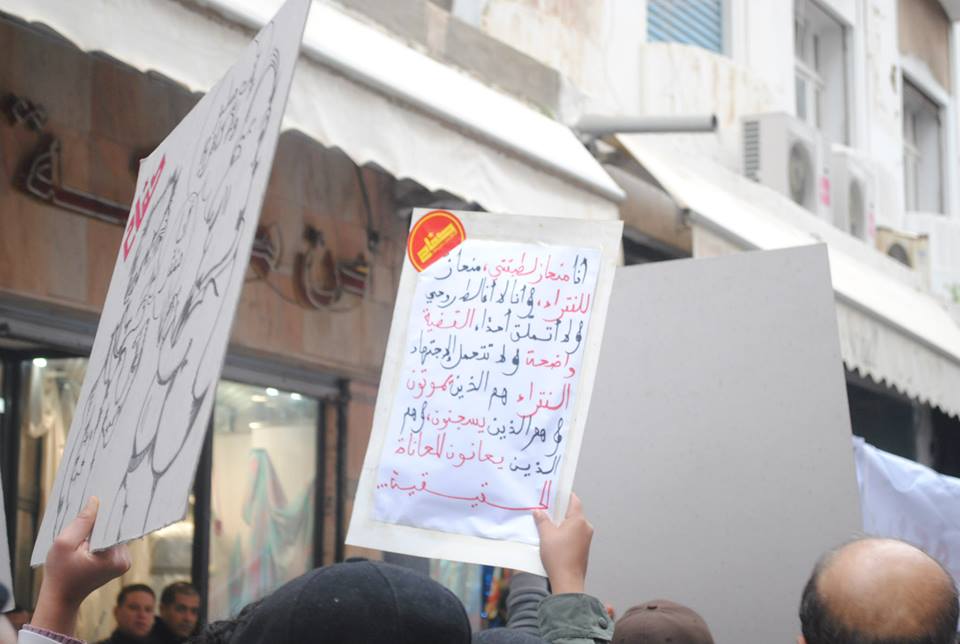 صفاح
صفاح
أنا منحاز لطبقتي، منحاز
للفقراء، وأنا لا أغالط روحي
ولا أتملق أحدا، القضية
واضحة ولا تتحمل الإجتهاد
الفقراء هم الذين يموتون
وهم الذين يسجنون، وهم
الذين يعانون المعاناة
الحقيقية...